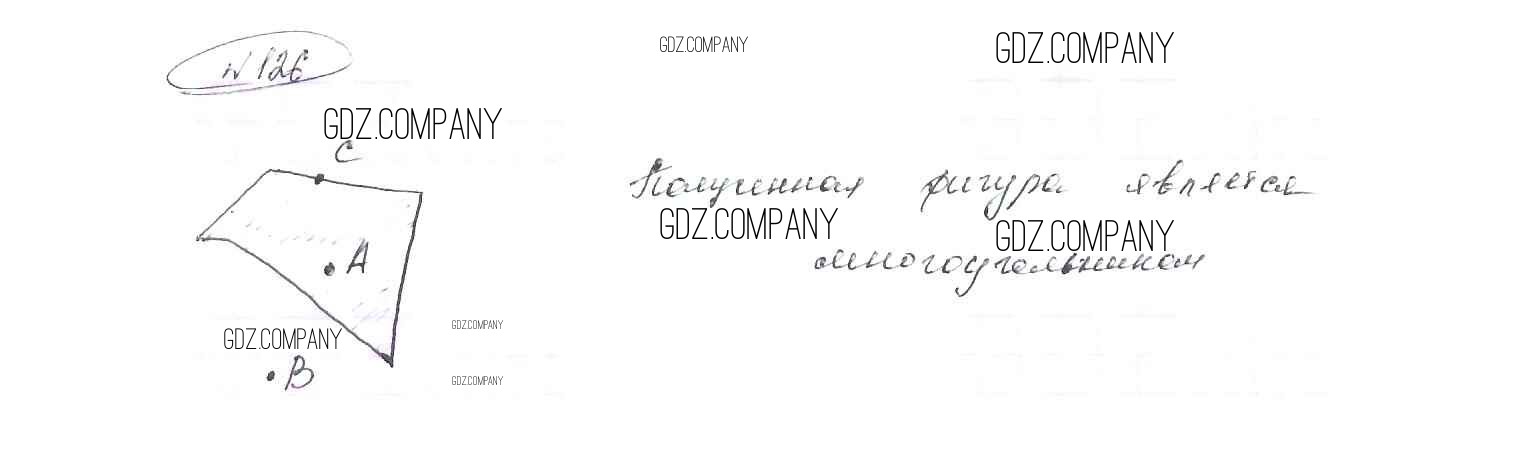 № 126
GDZ.COMPANY
GDZ.COMPANY
GDZ.COMPANY
C
Полученная фигура является
GDZ.COMPANY
GDZ.COMPANY
многоугольником
A
GDZ.COMPANY
GDZ.COMPANY
B
GDZ.COMPANY